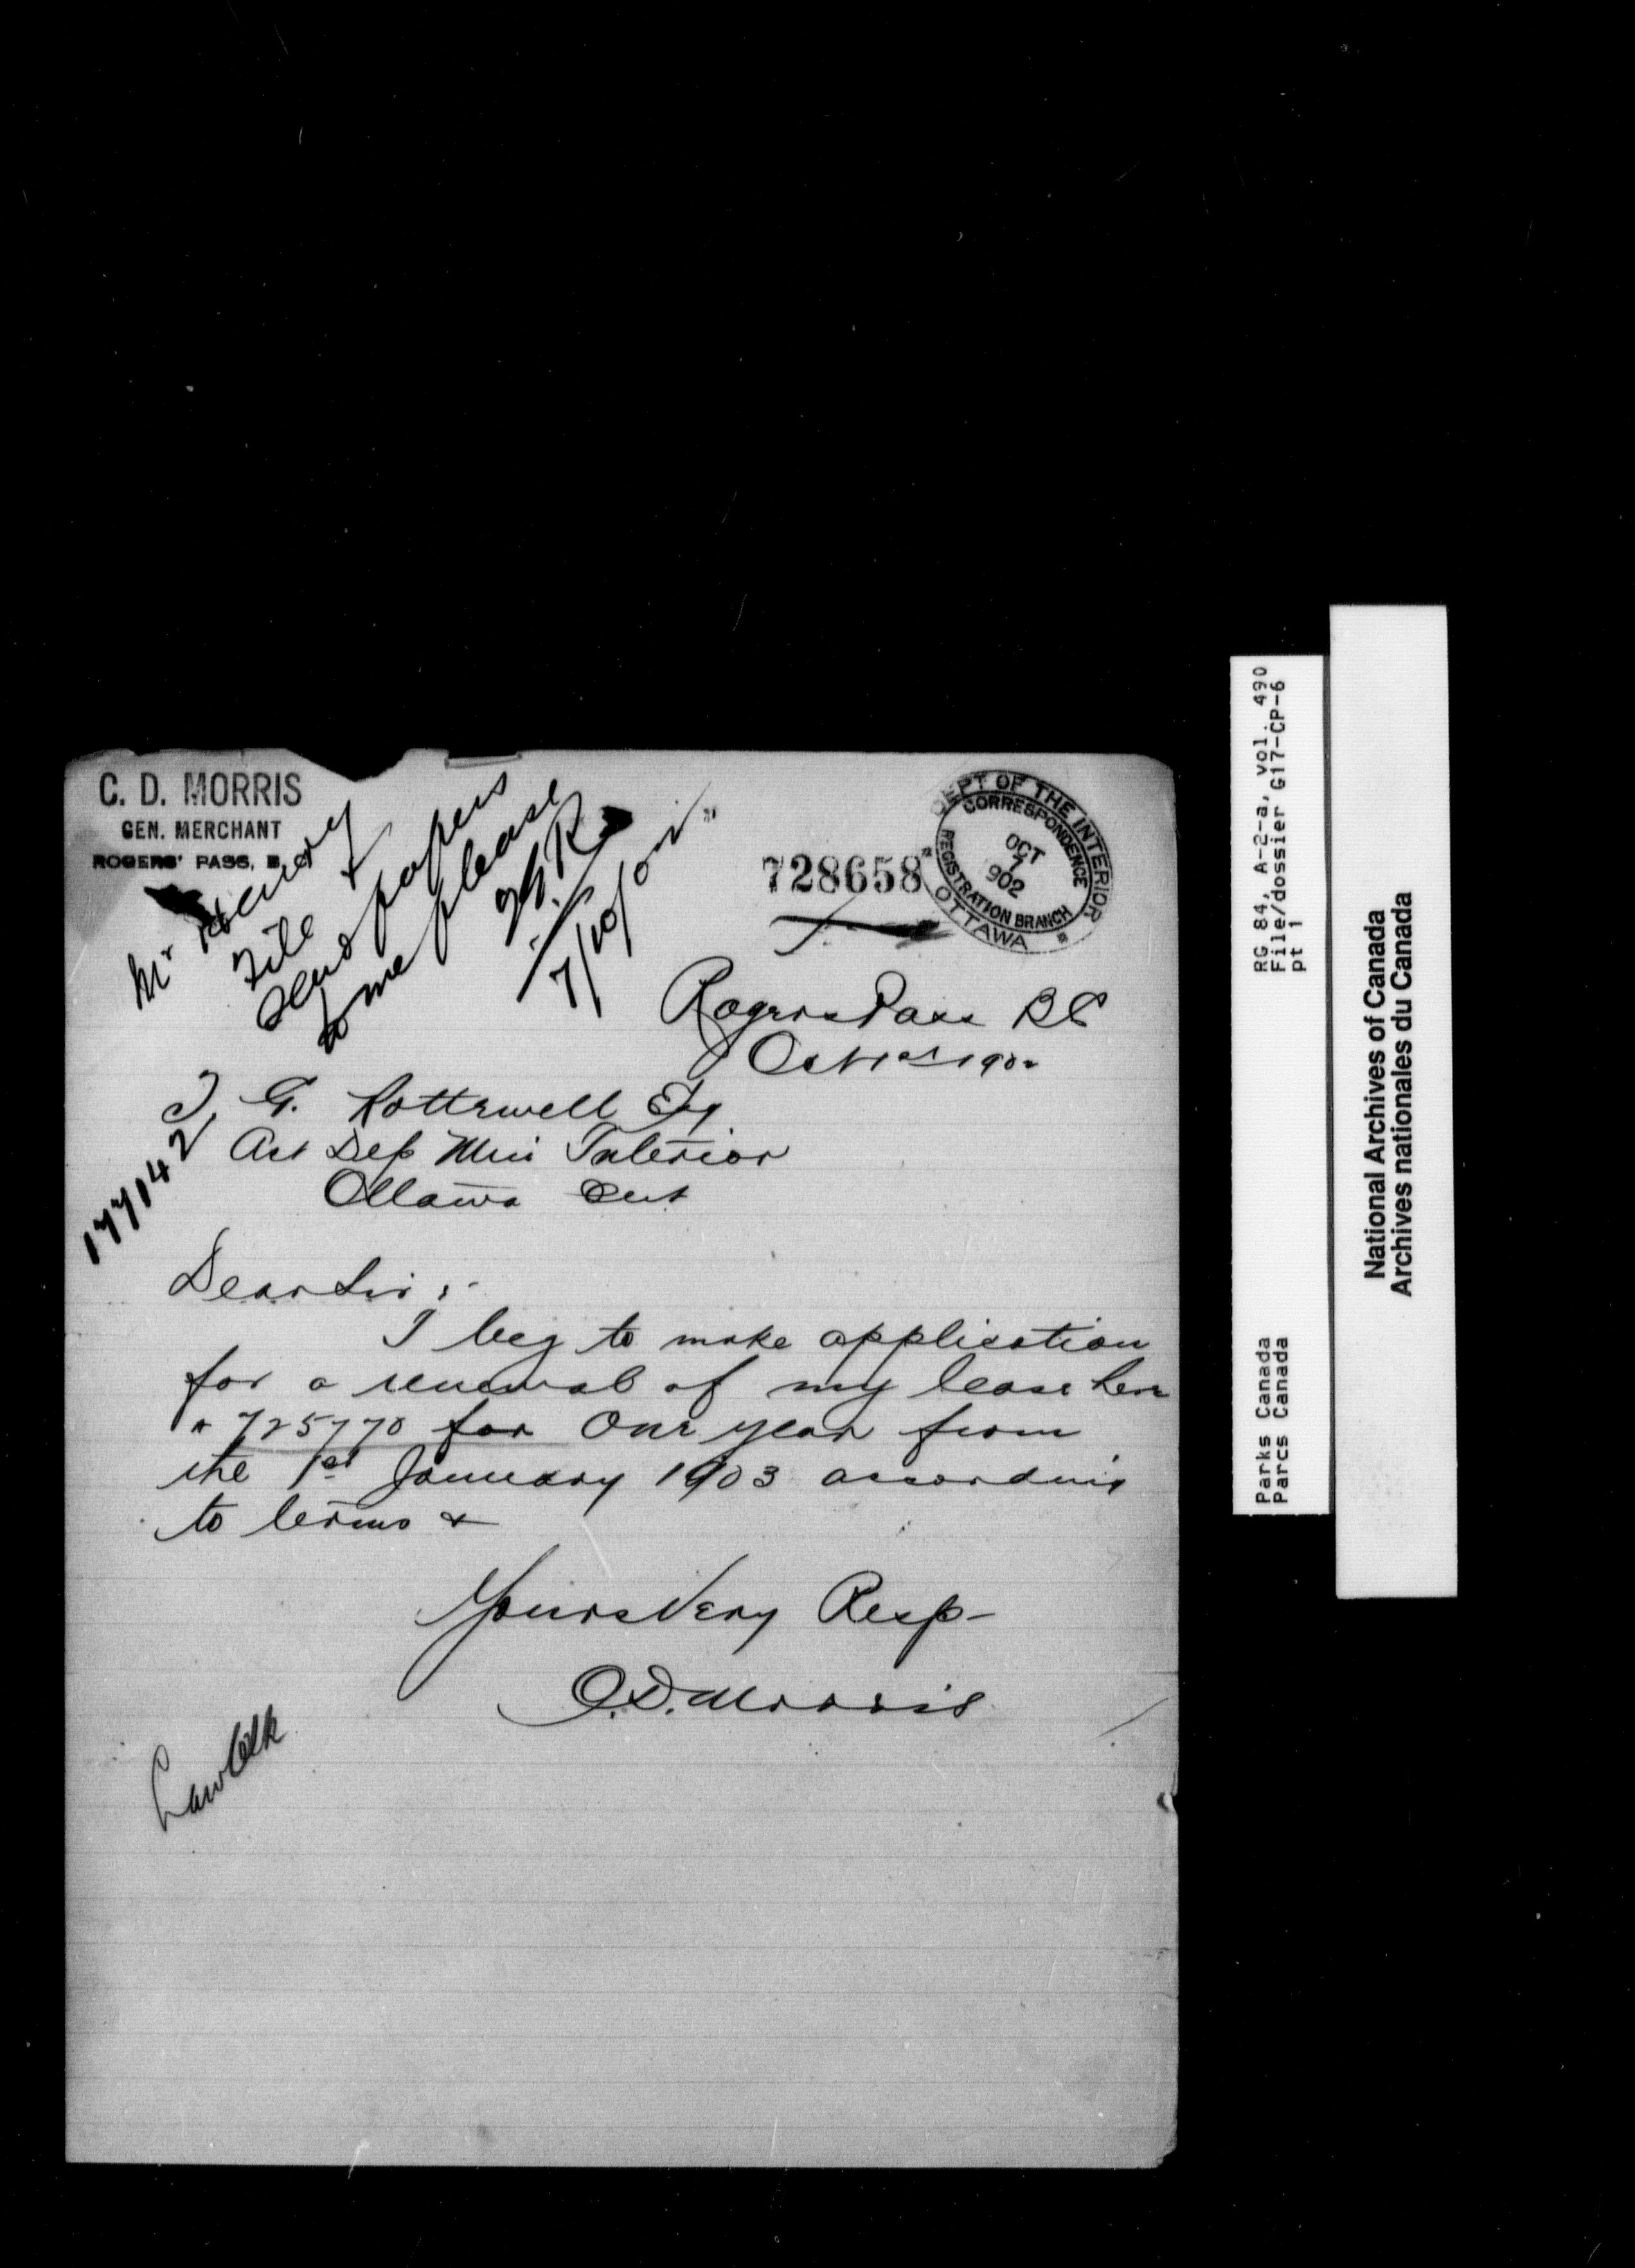 C. D. MORRIS
GEN. MERCHANT
ROGERS' PASS, B.C.
Mr Henry
File &
send papers
to me please
T.G.R.
7/10/02
728658
DEPT OF THE INTERIOR
CORRESPONDENCE
OCT
7
902
REGISTRATION BRANCH
OTTAWA
Rogers Pass BC
Oct 1st 1902
T, G. Rotherwell Esq
Act Dep Min Interior
Ottawa Ont
177142
Dear Sir :-
I beg to make application
for a renewal of my lease here
725770 for One year from
the 1st January 1903 according
to terms &
Yours Very Resp-
C.D. Morris
Law Clk
RG 84, A-2-a, vol. 490
File/dossier G17-CP-6
pt 1
Parks Canada
Parcs Canada
National Archives of Canada
Archives nationales du Canada